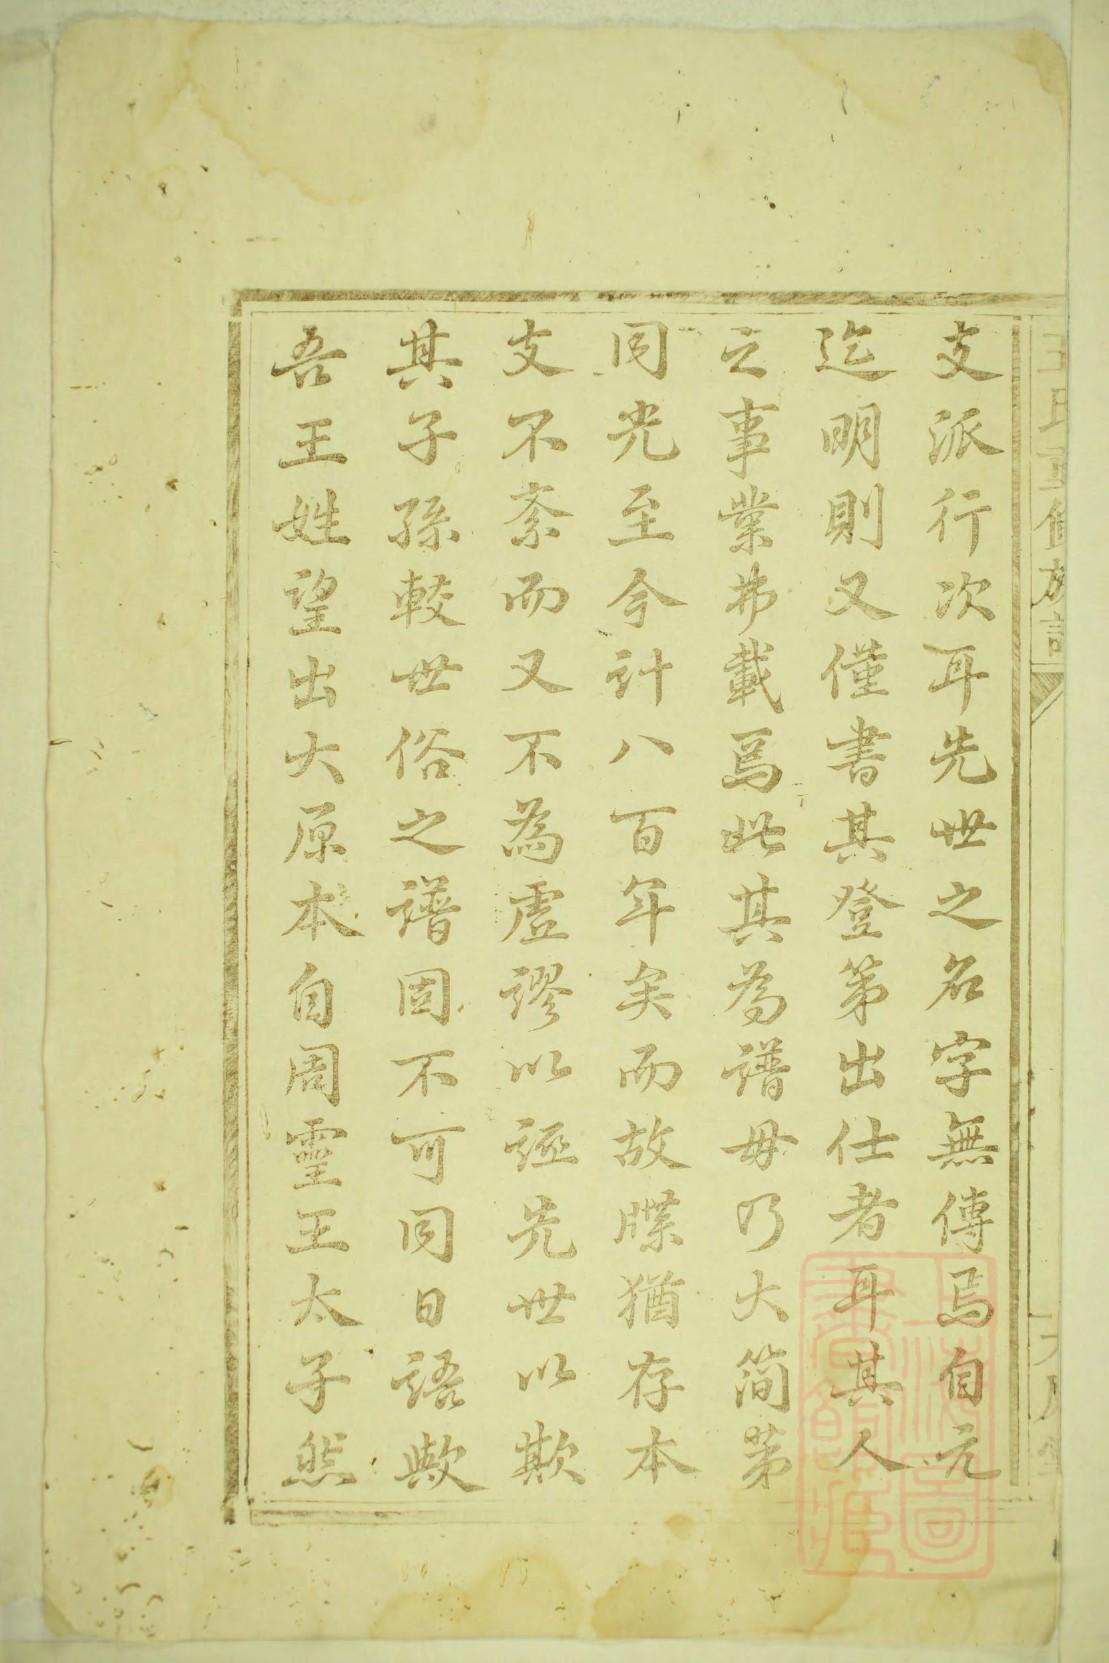 支派行次耳先世之名字無傳焉自元
迄明則又僅書其登第出仕者耳其人
之事業弗載焉此其為譜毋乃大简第
同光至今計八百年矣而故牒猶存本
支不紊而又不為虛謬以誣先世以欺
其子孫較世俗之譜固不可同日語歟
吾王姓望出大原本自周靈王太子然